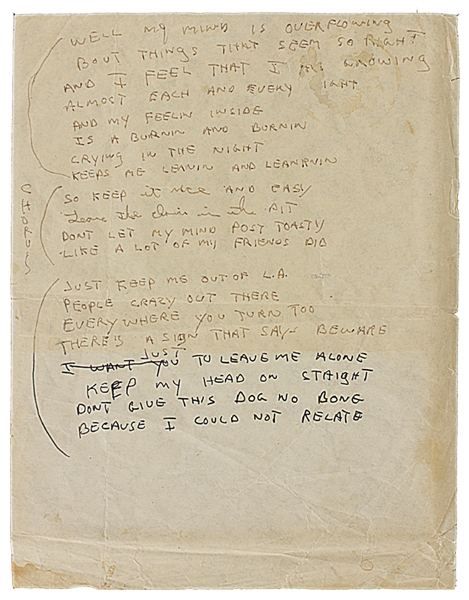 WELL MY MIND IS OVERFLOWING
BOUT THINGS THAT SEEM SO RIGHT
AND I FEEL THAT I AM GROWING
ALMOST EACH AND EVERY IGHT
AND MY FEELIN INSIDE
IS A BURNIN AND BURNIN
CRYING IN THE NIGHT
KEEPS ME LEAVIN AND LEARNVIN
CHORUS
SO KEEP it NICE AND EASY
Leave the in the PIT
DONT LET MY MIND POST TOASTY
LIKE A LOT OF MY FRIENDS DID
JUST KEEP ME OUT OF L.A.
PEOPLE CRAZY OUT THERE
EVERYWHERE YOU TURN TOO
THERE'S A SIGN THAT SAYS BEWARE
JUST
I WANT YOU TO LEAVE ME ALONE
KEEP MY HEAD ON STRAIGHT
DONT GIVE THIS DOG NO BONE
BECAUSE I COULD NOT RELATE